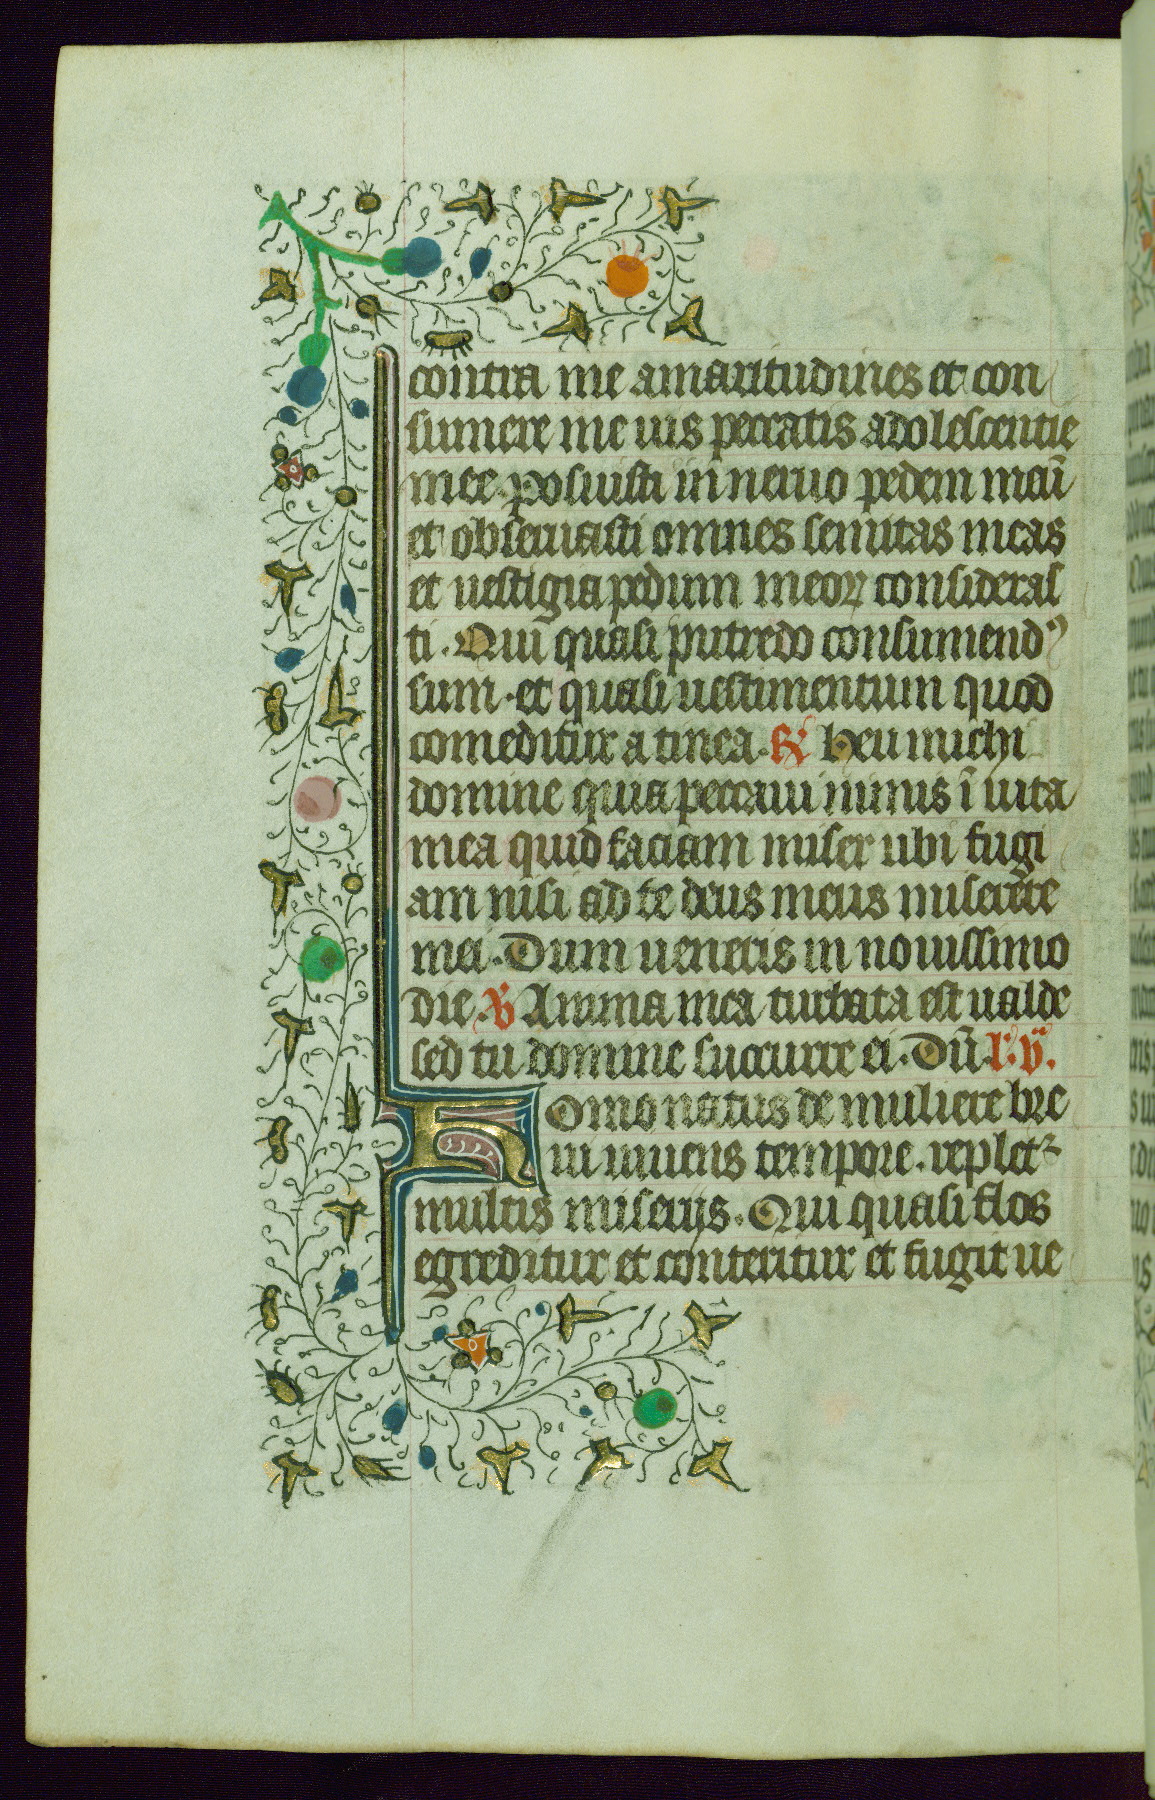 contra me amaritudines et con
sumere me uis peccatis adolescentie
mee. posuisti in neruo pedem meū
et obseruasti omnes semitas meas
et uestigia pedum meoꝝ consideras
ti. Qui quasi putredo consumendꝰ
sum. et quasi uestimentum quod
comeditur a tinea. ℟ Heu michi
domine quia peccaui nimis ī uita
mea quid faciam miser ubi fugi
am nisi ad te deus meus miserere
mei. Dum ueneris in nouissimo
die. ℣ Anima mea turbata est ualde
sed tu domine succurre ei. Dū l. v̈.
Homo natus de muliere bre
ui uiuens tempore. repletᷣ
multis miserijs. Qui quasi flos
egreditur et conteritur et fugit ue